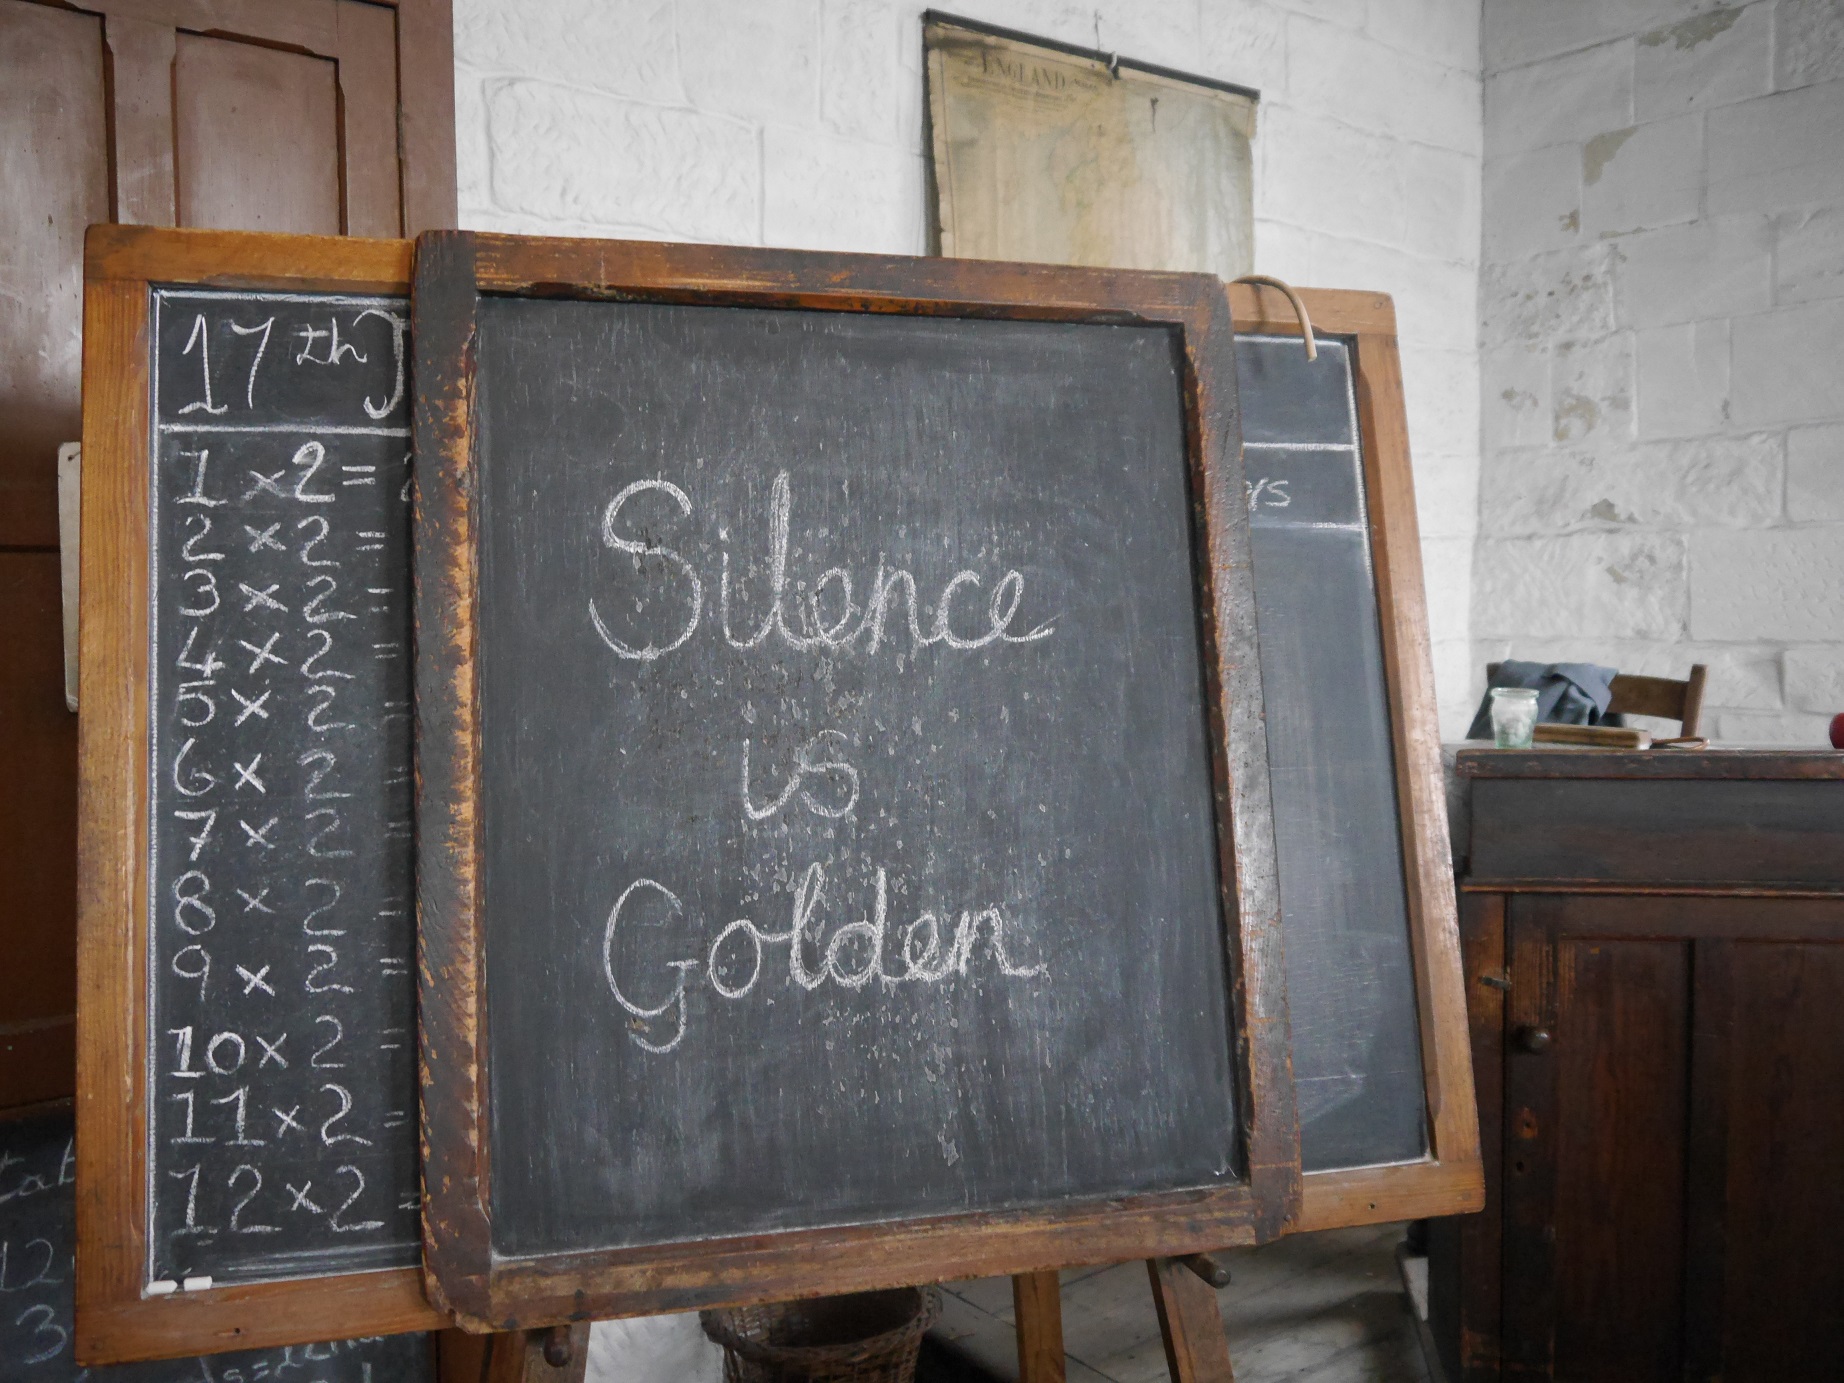 ENGLAND
17th J
1 x 2 =
2 x 2 =
3 x 2 =
4 x 2 =
5 x 2 =
6 x 2
7 x 2 =
8 x 2 =
9 x 2 =
10 x 2 =
11 x 2 =
12 x 2 =
Silence
is
Golden
ys
12
3